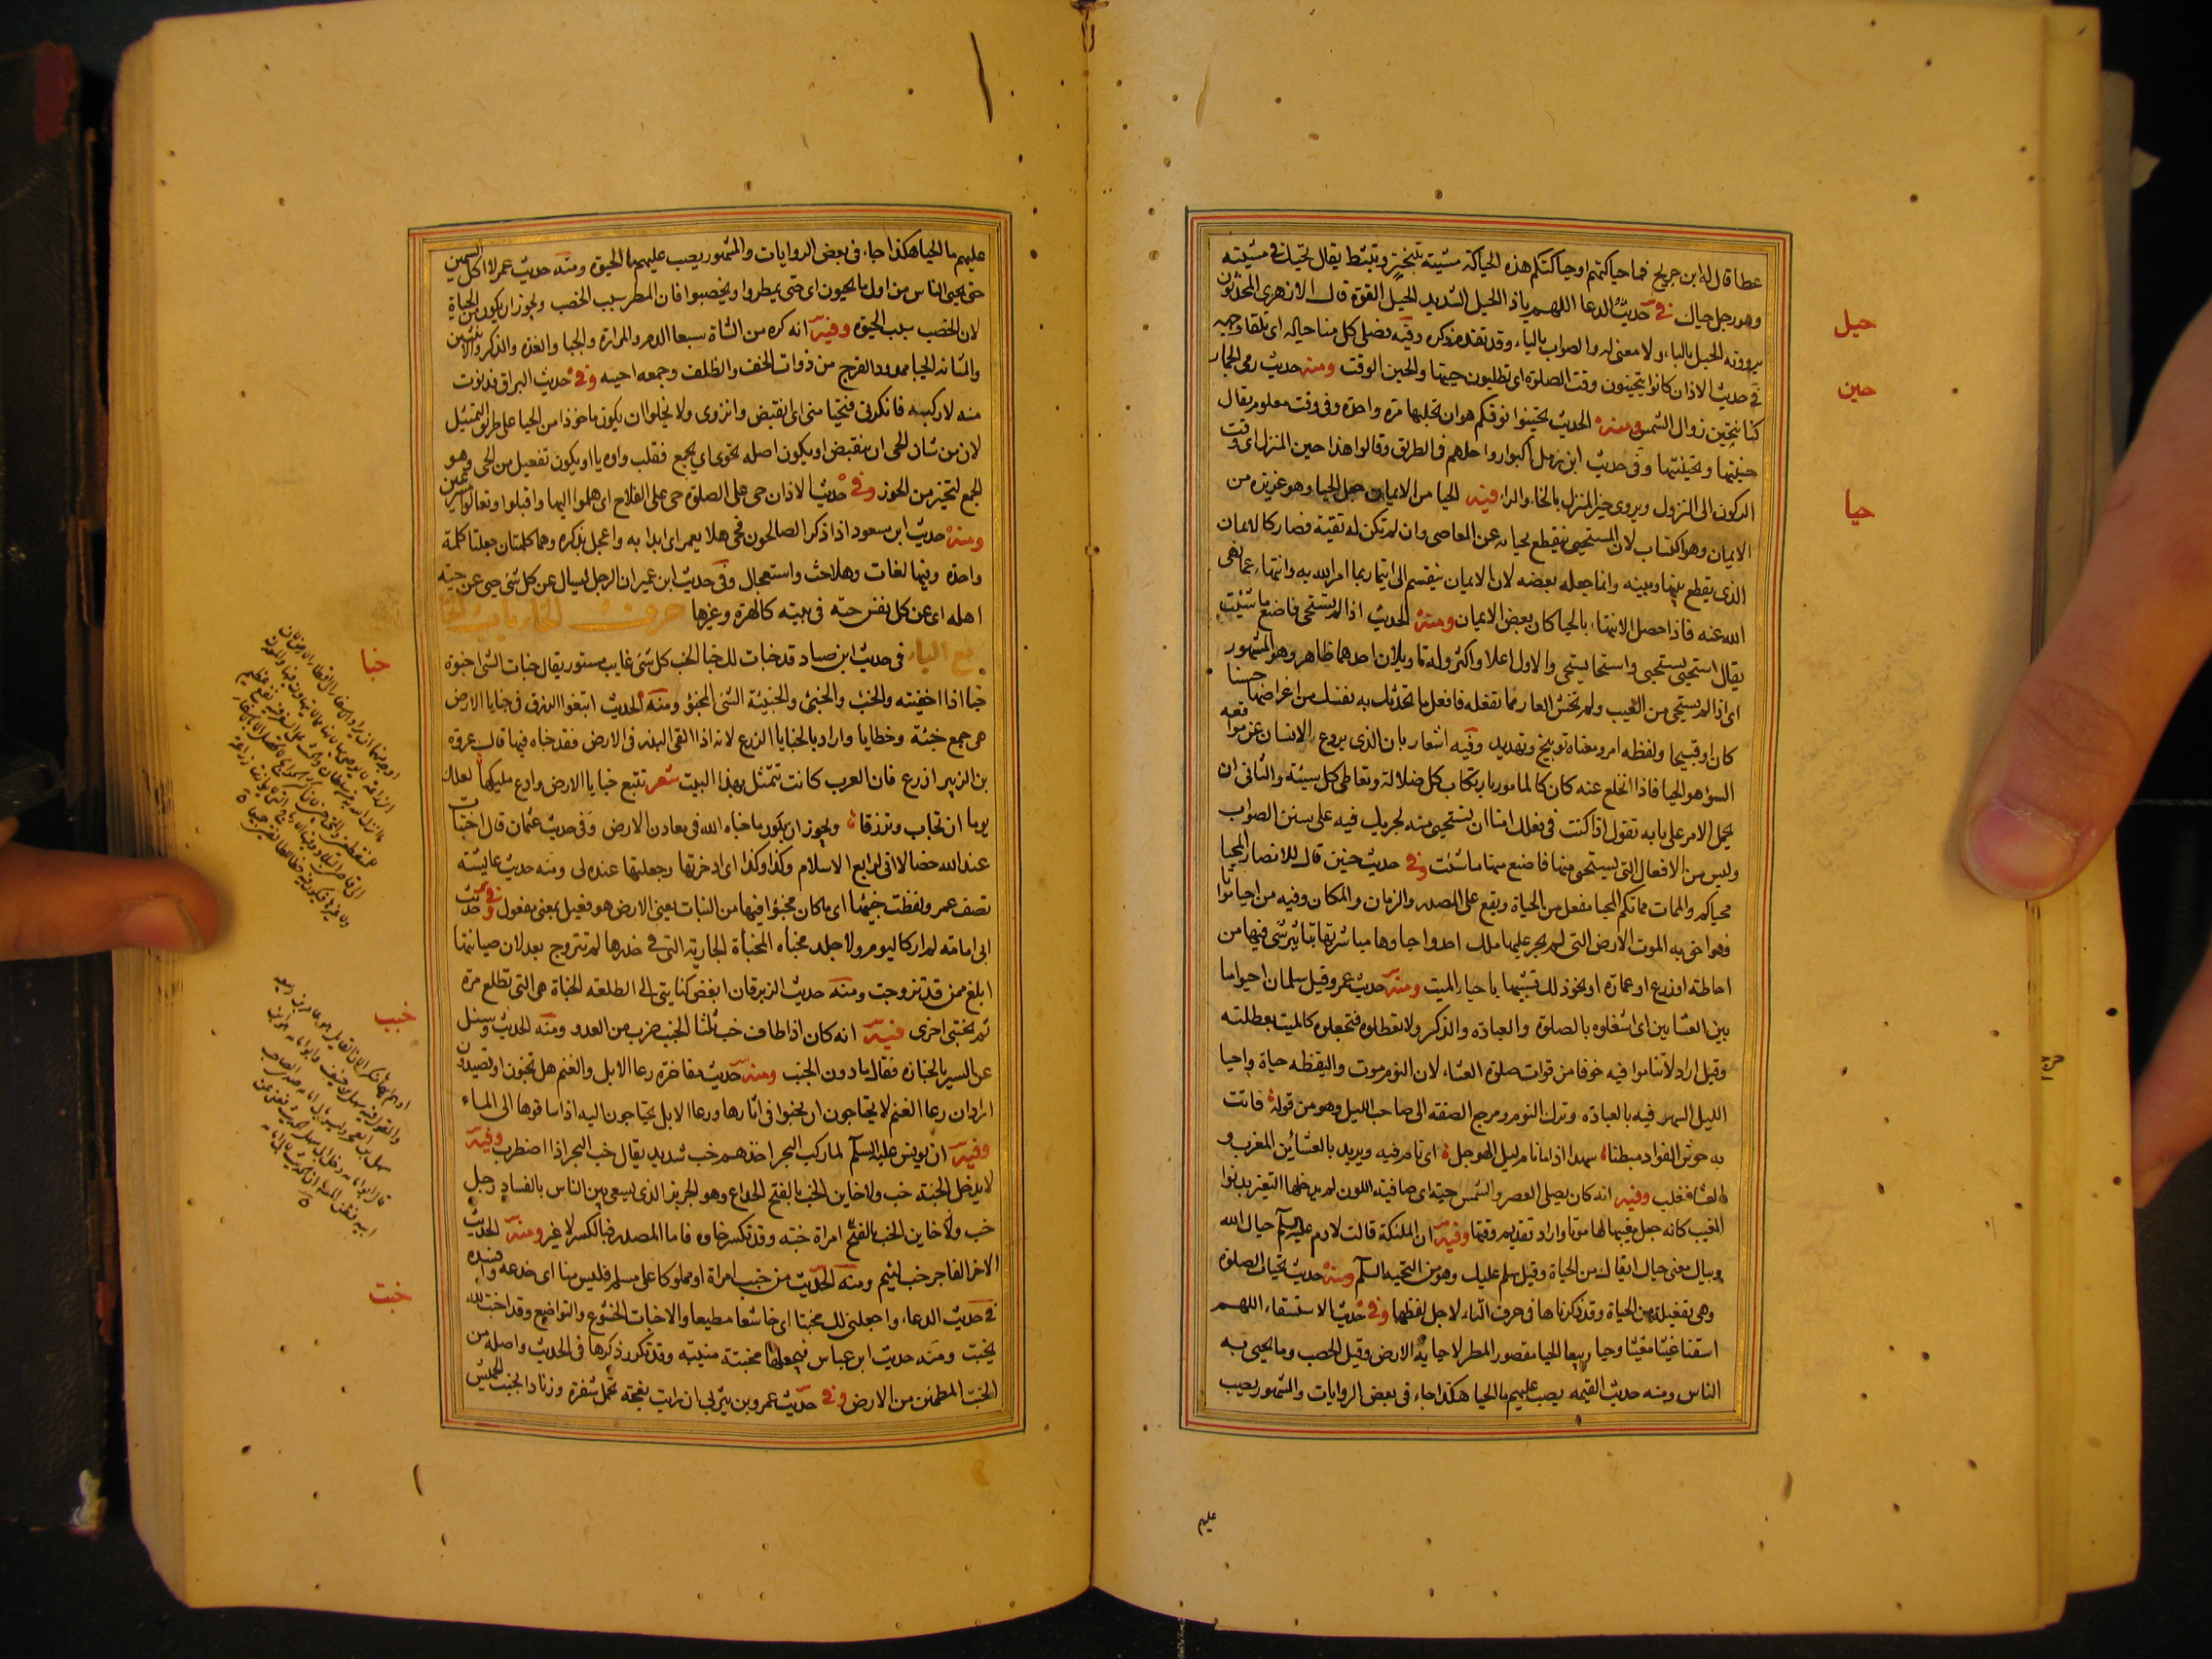 عطا قال له ابن جريج فما حياكتهم او حياكتكم هذه الحياكة مشيته تبختر وتثبط يقال تحيك في مشيته
وهو رجل حياك في حديث الدعا اللهم ياذا الحيل الشديد الحيل القوة قال الازهري المحدثون
يروونه الحبل بالباء ولا معنى له والصواب بالياء وقد تقدم ذكره وفيه فصلى كل منا حياله اى تلقاء وجهه
في حديث الاذان كانوا يتحينون وقت الصلوة اى تطلبون حينها والحين الوقت ومنه حديث رمى الجمار
كنا نتحين زوال الشمس ومنه الحديث تحينوا نوقكم هو ان تحلبها مرة واحدة وفى وقت معلوم يقال
حينتها وتحينتها وفى حديث ابن زمل اكبوا رواحلهم فى الطريق وقالوا هذا حين المنزل اى وقت
الركون الى النزول ويروى خير المنزل بالخاء والراء فيه الحيا من الايمان جعل الحيا وهو غريزة من
الايمان وهو اكتساب لان المستحيى ينقطع بحيائه عن المعاصى وان لم تكن له تقية فصار كالايمان
الذى يقطع بينها وبينه وانما جعله بعضه لان الايمان ينقسم الى ايتمار بما امر الله به وانتهاء عما نهى
الله عنه فاذا حصل الانتهاء بالحيا كان بعض الايمان ومنه الحديث اذا لم تستحى فاصنع ما شئت
يقال استحيى يستحيى واستحا يستحى والاول اعلا واكثر وله تاويلان احدهما ظاهر وهو المشهور
اى اذا لم يستحى من العيب ولم تخش العار مما تفعله فافعل ما تحدثك به نفسك من اغراضها حسنا
كان او قبيحا ولفظه امر ومعناه توبيخ وتهديد وفيه اشعار بان الذى يردع الانسان عن مواقعه
السو هو الحيا فاذا انخلع عنه كان كالمامور بارتكاب كل ضلالة وتعاطى كل سيئة والثانى ان
يحمل الامر على بابه تقول اذا كنت فى فعلك امنا ان تستحيى منه لجريك فيه على سنن الصواب
وليس من الافعال التى يستحيى منها فاصنع منها ما شئت وفى حديث حنين قال للانصار المحيا
محياكم والممات مماتكم المحيا مفعل من الحياة ويقع على المصدر والزمان والمكان وفيه من احيا مواتا
فهو احق به الموت الارض التى لم يجر عليها ملك احد واحياوها مباشرتها بتاثير شى فيها من
احاطة او زرع او عمارة او نحو ذلك تشبيها باحياء الميت ومنه حديث عمر وقيل سلمان احيوا ما
بين العشاين اى اشغلوه بالصلوة والعبادة والذكر ولا تعطلوه فتجعلوه كالميت بعطلته
وقيل اراد لا تناموا فيه خوفا من فوات صلوة العشاء لان النوم موت واليقظه حياة واحيا
الليل السهر فيه بالعبادة وترك النوم ومرجع الصفة الى صاحب الليل وهو من قوله فاتت
به حوش الفواد مبطنا سهدا اذا ما نام ليل الهوجل اى نام فيه ويريد بالعشائين المغرب و
العشا فغلب وفيه انه كان يصلى العصر والشمس حية اى صافية اللون لم يدخلها التغير بدنو
المغيب كانه جعل مغيبها لها موتا واراد تقديم وقتها وفيه ان الملئكة قالت لادم عليه السلم حياك الله
وبياك معنى حياك ابقاك من الحياة وقيل سلم عليك وهو من التحيه السلم ومنه حديث تحيات الصلوة
وهى تفعلة من الحياة وقد ذكرناها فى حرف التاء لاجل لفظها وفى حديث الاستسقاء اللهم
اسقنا غيثا مغيثا وحيا ربيعا الحيا مقصور المطر لاحيايه الارض وقيل الخصب وما يحيى به
الناس ومنه حديث القيمه يصب عليهم ما الحيا هكذا جاء فى بعض الروايات والمشهور يصب
حيل
حين
حيا
عليهم
عليهم ما الحيا هكذا جاء فى بعض الروايات والمشهور يصب عليهم ما الحيوة ومنه حديث عمر لا اكل السمين
حتى يحيى الناس من اول ما يحيون اى حتى يمطروا ويخصبوا فان المطر سبب الخصب ويجوز ان يكون من الحياة
لان الخصب سبب الحيوة وفيه انه كره من الشاة سبعا الدم والمرارة والحيا والغدة والذكر والانثيين
والمثانه الحيا ممدود الفرج من ذوات الخف والظلف وجمعه احيية وفى حديث البراق فدنوت
منه لاركبه فانكرنى فتحيا منى اى انقبض وانزوى ولا يخلوا ان يكون ماخوذا من الحيا على طريق التمثيل
لان من شان الحى ان ينقبض او يكون اصله تحوى اى تجمع فقلب واوه ياء او يكون تفعيل من الحى وهو
الجمع لتحيز من الحوز وفى حديث الاذان حى على الصلوة حى على الفلاح اى هلموا اليها واقبلوا وتعالوا مسرعين
ومنه حديث ابن مسعود اذا ذكر الصالحون فحى هلا بعمر اى ابدا به واعجل بذكره وهما كلمتان جعلتا كلمة
واحدة وفيها لغات وهلا حث واستعجال وفى حديث ابن عمير ان الرجل ليسال عن كل شى حى عن حية
اهله اى عن كل نفس حية فى بيته كالهرة وغيرها حرف الخاء باب الخا
مع الباء فى حديث ابن صياد قد خبات لك خبا الخب كل شى غايب مستور يقال خبات الشى اخبوه
خبا اذا اخفيته والخب والخبئ والخبيئة الشى المخبؤ ومنه الحديث ابتغوا الرزق فى خبايا الارض
هى جمع خبئة وخطايا واراد بالخبايا الزرع لانه اذا القى البذر فى الارض فقد خباه فيها قال عروة
بن الزبير ازرع فان العرب كانت تتمثل بهذا البيت شعر تتبع خبايا الارض وادع مليكها لعلك
يوما ان تجاب وترزقا ويجوز ان يكون ما خباه الله فى معادن الارض وفى حديث عثمان قال اختبات
عند الله خصالا انى لرابع الاسلام وكذا وكذا اى ادخرتها وجعلتها عنده لى ومنه حديث عايشة
تصف عمر ولفظت خبيئها اى ما كان مخبؤا فيها من النبات يعنى الارض هو فعيل بمعنى مفعول وفى حديث
ابى امامة لم ار كاليوم ولا جلد مخباه المخباة الجارية التى فى خدرها لم تتزوج بعد لان صيانتها
ابلغ ممن قد تزوجت ومنه حديث الزبرقان ابغض كنائنى الى الطلعة الخباة هى التى تطلع مرة
ثم تختبى اخرى فيه انه كان اذا طاف خب ثلثا الخبب ضرب من العدو ومنه الحديث وسئل
عن السير بالجنازة فقال ما دون الخبب ومنه حديث مفاخرة رعا الابل والغنم هل تخبون او تصيدون
اراد ان رعا الغنم لا يحتاجون ان يخبوا فى اثارها ورعا الابل يحتاجون اليه اذا ساقوها الى الماء
وفيه ان يونس عليه السلم لما ركب البحر اخذهم خب شديد يقال خب البحر اذا اضطرب وفيه
لا يدخل الجنة خب ولا خاين الخب بالفتح الخداع وهو الجربز الذى يسعى بين الناس بالفساد رجل
خب ولا خاين الخب بالفتح امراة خبة وقد تكسر خاوه فاما المصدر فبالكسر لا غير ومنه الحديث
الاخر الفاجر خب لئيم ومنه الحديث من خبب امراة او مملوكا على مسلم فليس منا اى خدعه وافسده
فى حديث الدعاء واجعلنى لك مخبتا اى خاشعا مطيعا والاخبات الخشوع والتواضع وقد اخبت لله
يخبت ومنه حديث ابن عباس فيجعلها مخبتة منيبة وقد تكرر ذكرها فى الحديث واصله من
الخبت المطمئن من الارض وفى حديث عمرو بن يثربى ان رايت نعجة تحمل شفرة وزنادا بخبت الجميش
خبا
خبب
خبت